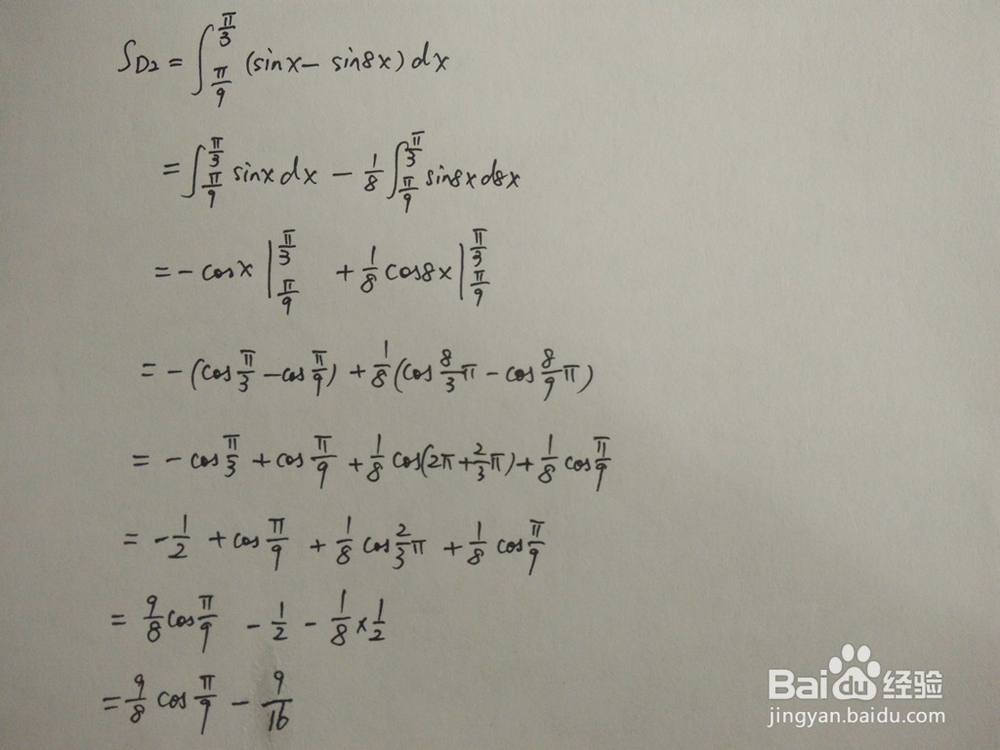 S_{D2} = ∫_{π/9}^{π/3} (sinx - sin8x) dx
= ∫_{π/9}^{π/3} sinx dx - 1/8 ∫_{π/9}^{π/3} sin8x d8x
= -cosx |_{π/9}^{π/3} + 1/8 cos8x |_{π/9}^{π/3}
= -(cos π/3 - cos π/9) + 1/8 (cos 8/3 π - cos 8/9 π)
= -cos π/3 + cos π/9 + 1/8 cos(2π + 2/3 π) + 1/8 cos π/9
= -1/2 + cos π/9 + 1/8 cos 2/3 π + 1/8 cos π/9
= 9/8 cos π/9 - 1/2 - 1/8 × 1/2
= 9/8 cos π/9 - 9/16
Bai du 经验
jingyan.baidu.com